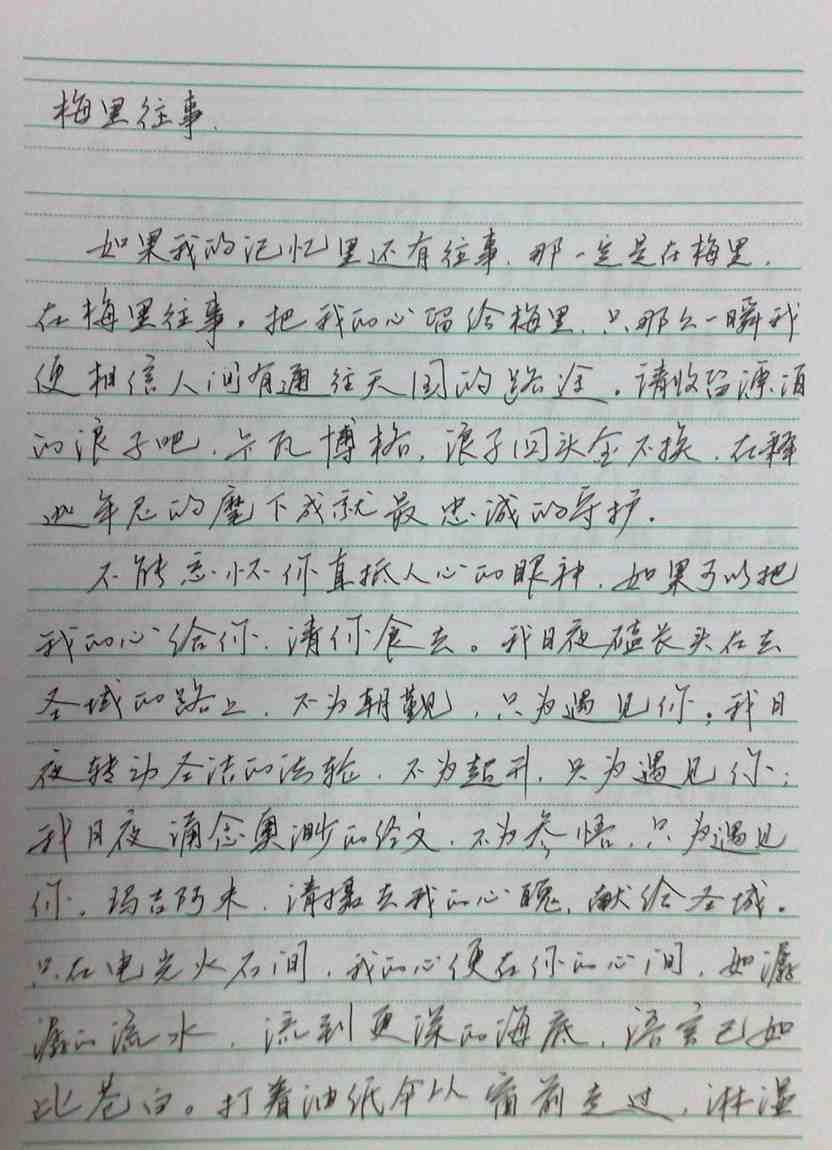 梅里往事.
如果我的记忆里还有往事,那一定是在梅里,
在梅里往事。把我的心留给梅里,只那么一瞬我
便相信人间有通往天国的路途。请收留漂泊
的浪子吧,卡瓦博格,浪子回头金不换,在释
迦牟尼的麾下成就最忠诚的守护.
不能忘怀你直抵人心的眼神,如果可以把
我的心给你,请你食去。我日夜磕长头在去
圣域的路上,不为朝觐,只为遇见你;我日
夜转动圣洁的法轮,不为超升,只为遇见你;
我日夜诵念奥渺的经文,不为参悟,只为遇见
你。玛吉阿米,请摄去我的心魄,献给圣域。
只在电光火石间,我的心便在你的心间,如潺
潺的流水,流到更深的海底,语言已如
此苍白。打着油纸伞从窗前走过,淋湿